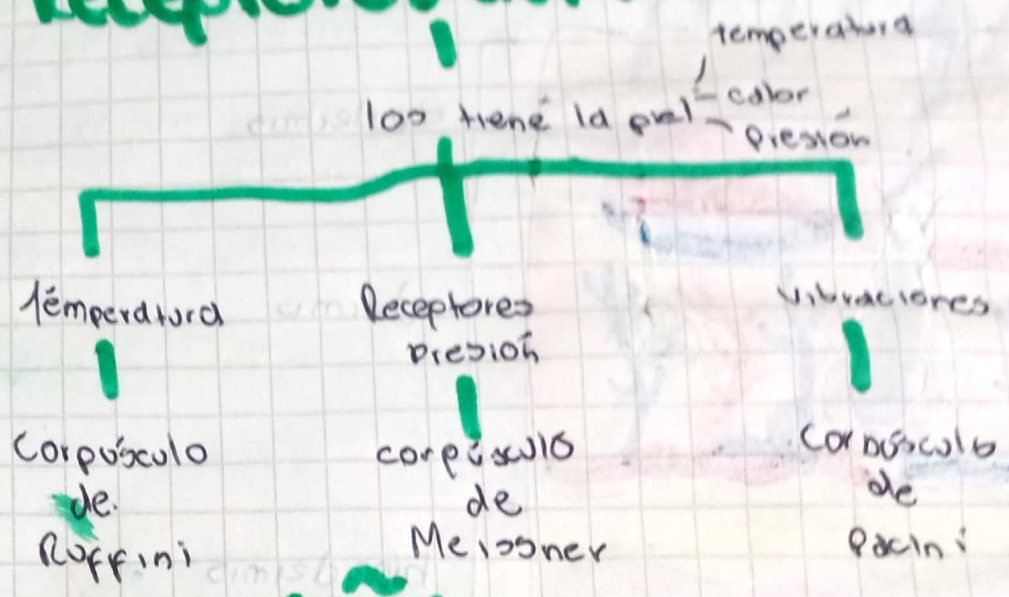 Receptores
temperatura
los tiené la piel
calor
Presión
Témperatura
Receptores
presión
Vibraciones
Corpúsculo
de.
Ruffini
corpúsculo
de
Meissner
Corpúsculo
de
Pacini